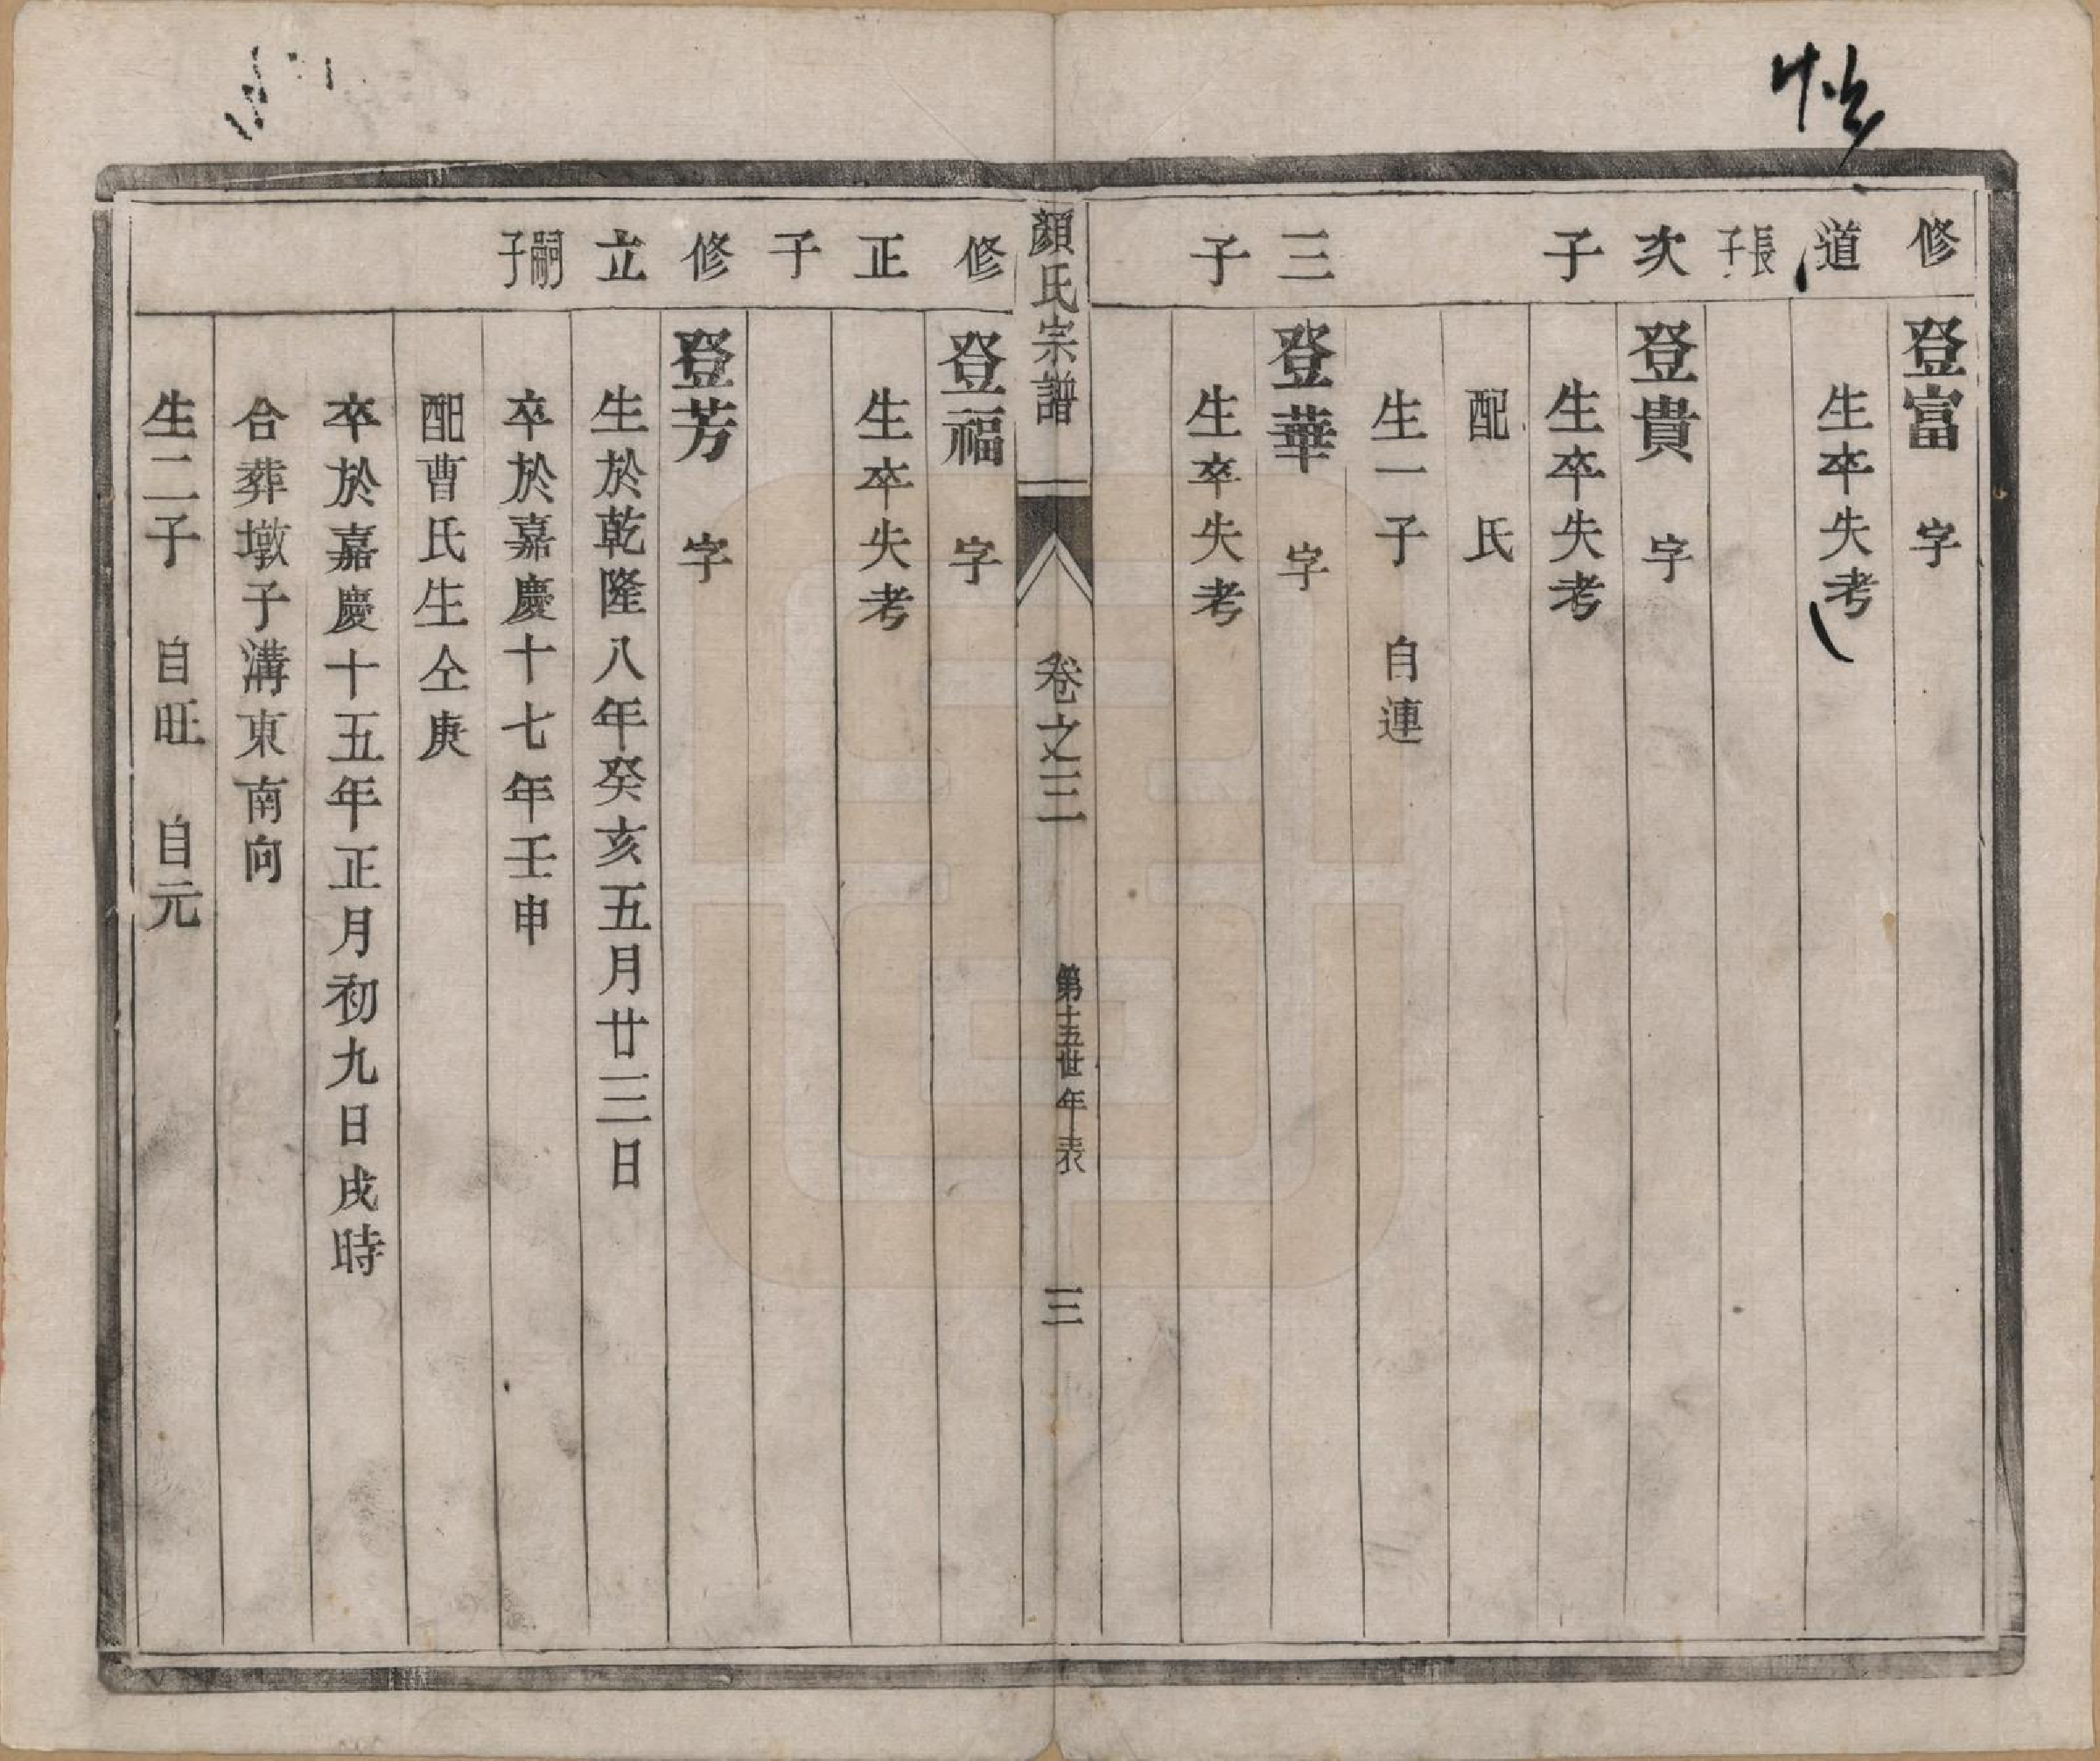 修道長子
登富 字
生卒失考
次子
登貴 字
生卒失考
配 氏
生一子 自連
三子
登華 字
生卒失考
顏氏宗譜 卷之三 第十五世年表 三
修正子
登福 字
生卒失考
修立嗣子
登芳 字
生於乾隆八年癸亥五月廿三日
卒於嘉慶十七年壬申
配曹氏生仝庚
卒於嘉慶十五年正月初九日戌時
合葬墩子溝東南向
生二子 自旺 自元